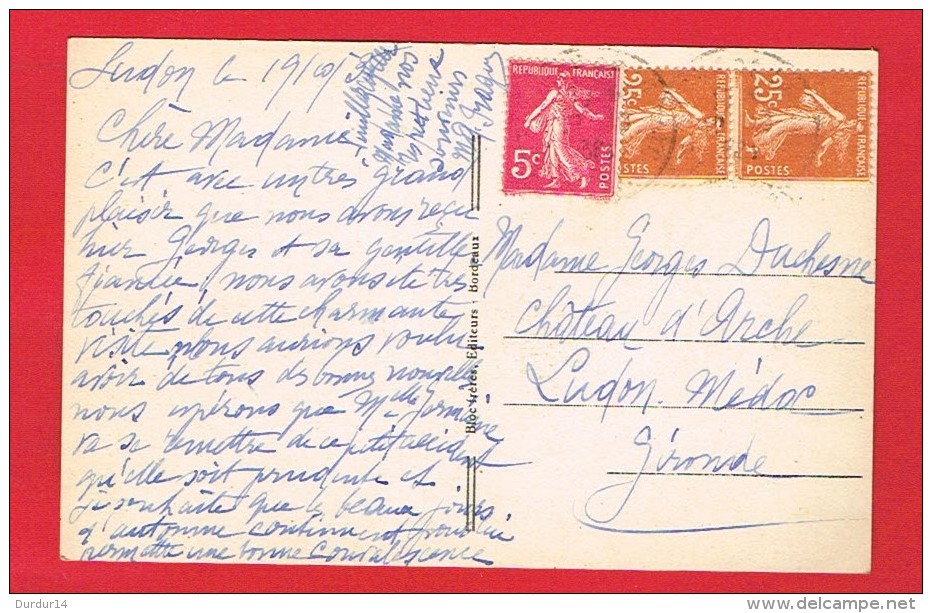 Ludon le 19/10/
Chère Madame
C'est avec un très grand
plaisir que nous avons reçu
hier Georges et sa gentille
fiancée, nous avons été très
touchés de cette charmante
visite nous aurions voulu
avoir de tous des bonnes nouvelles
nous espérons que Melle Germaine
va se remettre de ce petit accident
qu'elle soit prudente et
je souhaite que les beaux jours
d'automne continuent pour lui
permettre une bonne convalescence
Madame nos
REPUBLIQUE FRANÇAISE
5c
POSTES
25c
REPUBLIQUE FRANÇAISE
POSTES
25c
REPUBLIQUE FRANÇAISE
POSTES
Bloc frères, Editeurs - Bordeaux
Madame Georges Duchesne
Château d'Arche
Ludon. Médoc
Gironde
Durdur14
delcampe.net